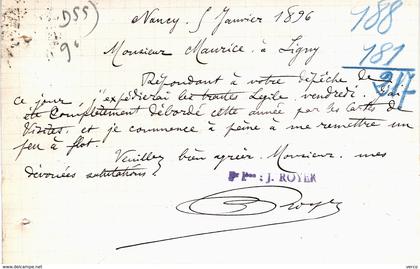 D55)
9c
Nancy. 5 Janvier 1896
188
181
217
Monsieur Maurice, à Ligny
Répondant à votre dépêche de
ce jour, j'expédierai les toutes Légile vendredi. J'ai
été complètement débordé cette année par les cartes de
Visites, et je commence à peine à me remettre un
peu à flot.
Veuillez bien agréer Monsieur, mes
dévouées salutations.
J. ROYER
Royer